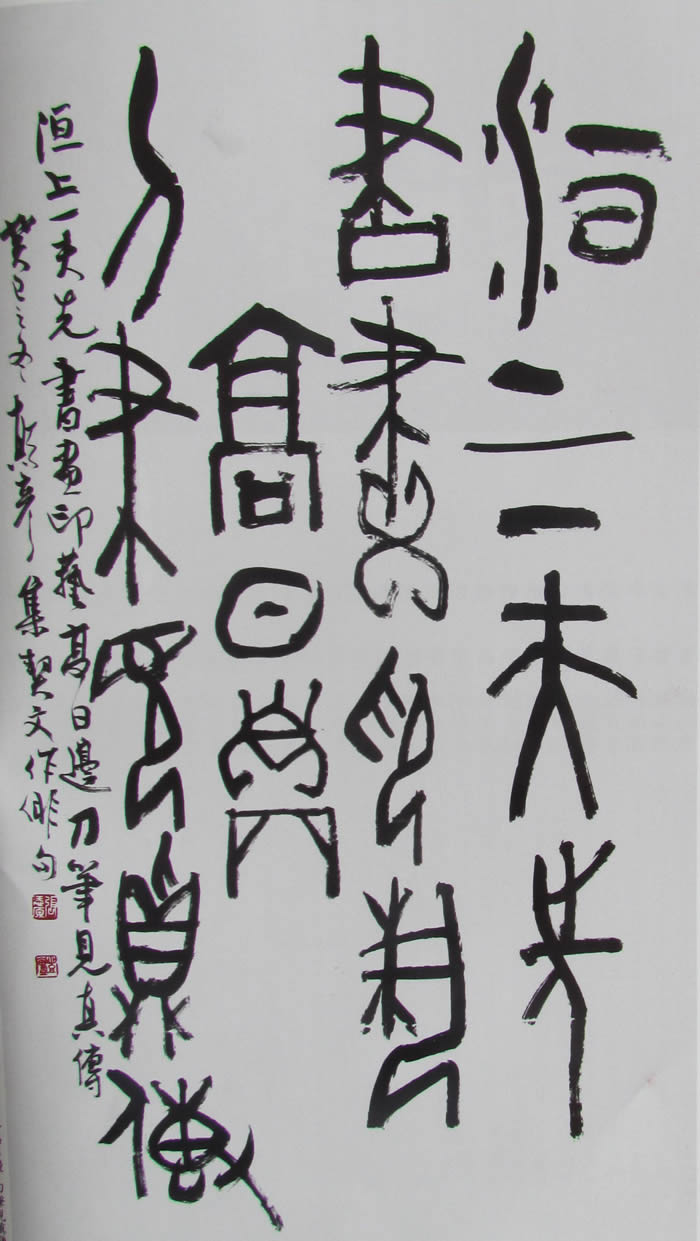 洹上一夫先
書畫印藝
高日邊
刀筆見真傳
洹上一夫先書畫印藝高日邊刀筆見真傳
癸巳之冬 集契文作俳句